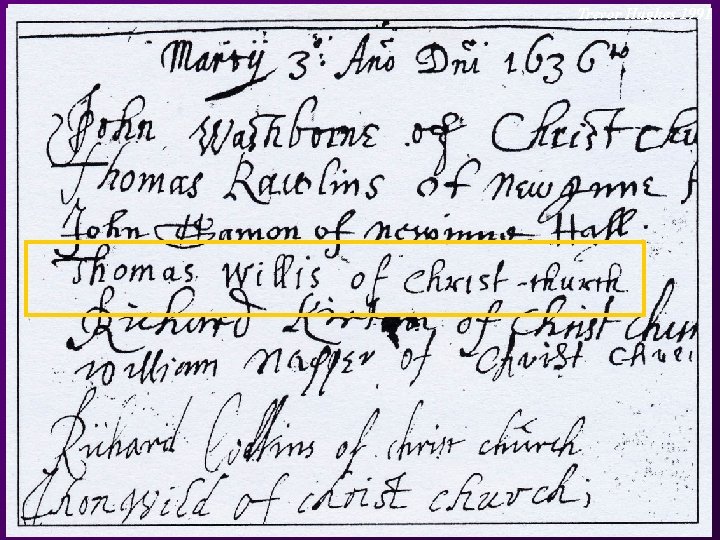 Martij 3°: Año Dñi 1636to
John Washborne of Christ chu
Thomas Rawlins of Newynne
John of newinne Hall.
Thomas Willis of Christ-church
Richard of Christ chur
William Napper of Christ Chur
Richard Collins of christ church
of christ church;